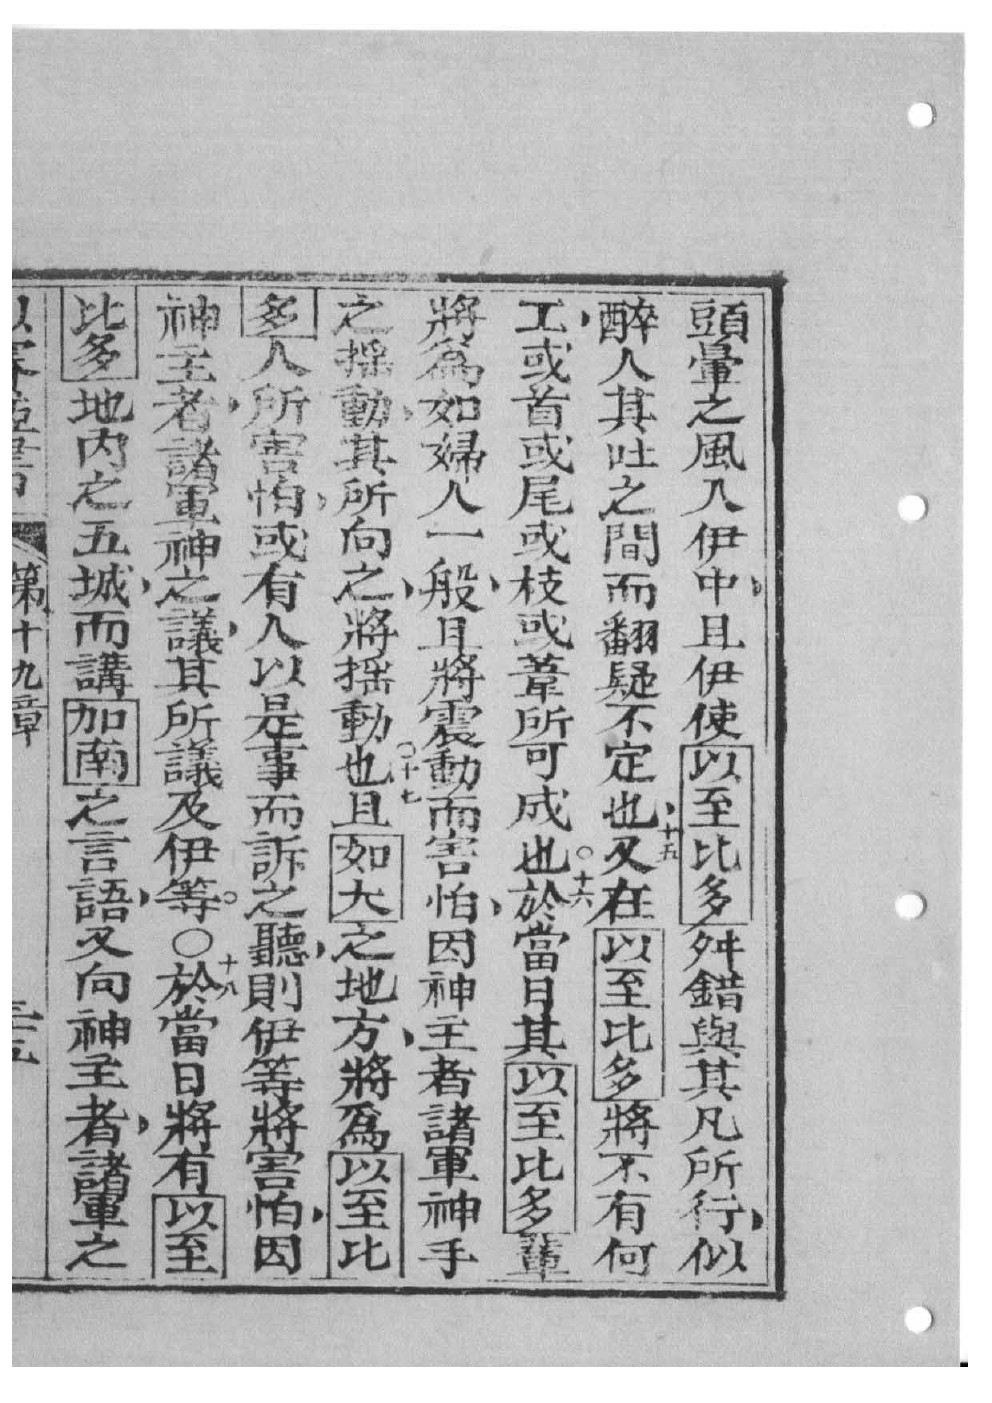 頭暈之風入伊中且伊使以至比多舛錯與其凡所行似
醉人其吐之間而翻疑不定也十五又在以至比多將不有何
工或首或尾或枝或葦所可成也○十六於當日其以至比多輩
將爲如婦人一般且將震動而害怕因神主者諸軍神手
之搖動其所向之將搖動也○十七且如大之地方將爲以至比
多人所害怕或有人以是事而訴之聽則伊等將害怕因
神主者諸軍神之議其所議及伊等○十八於當日將有以至
比多地內之五城而講加南之言語又向神主者諸軍之
第十九章